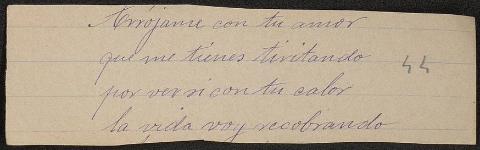 Arrójame con tu amor
que me tienes tiritando
44
por ver si con tu calor
la vida voy recobrando